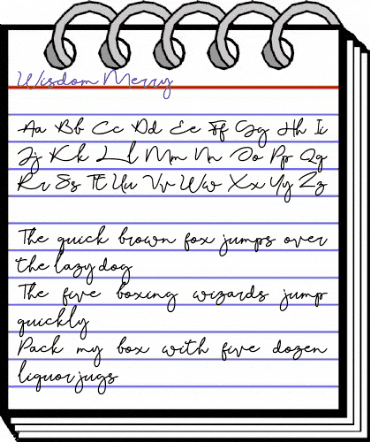 Wisdom Merry
Aa Bb Cc Dd Ee Ff Gg Hh Ii
Jj Kk Ll Mm Nn Oo Pp Qq
Rr Ss Tt Uu Vv Ww Xx Yy Zz
The quick brown fox jumps over
the lazy dog
The five boxing wizards jump
quickly
Pack my box with five dozen
liquor jugs